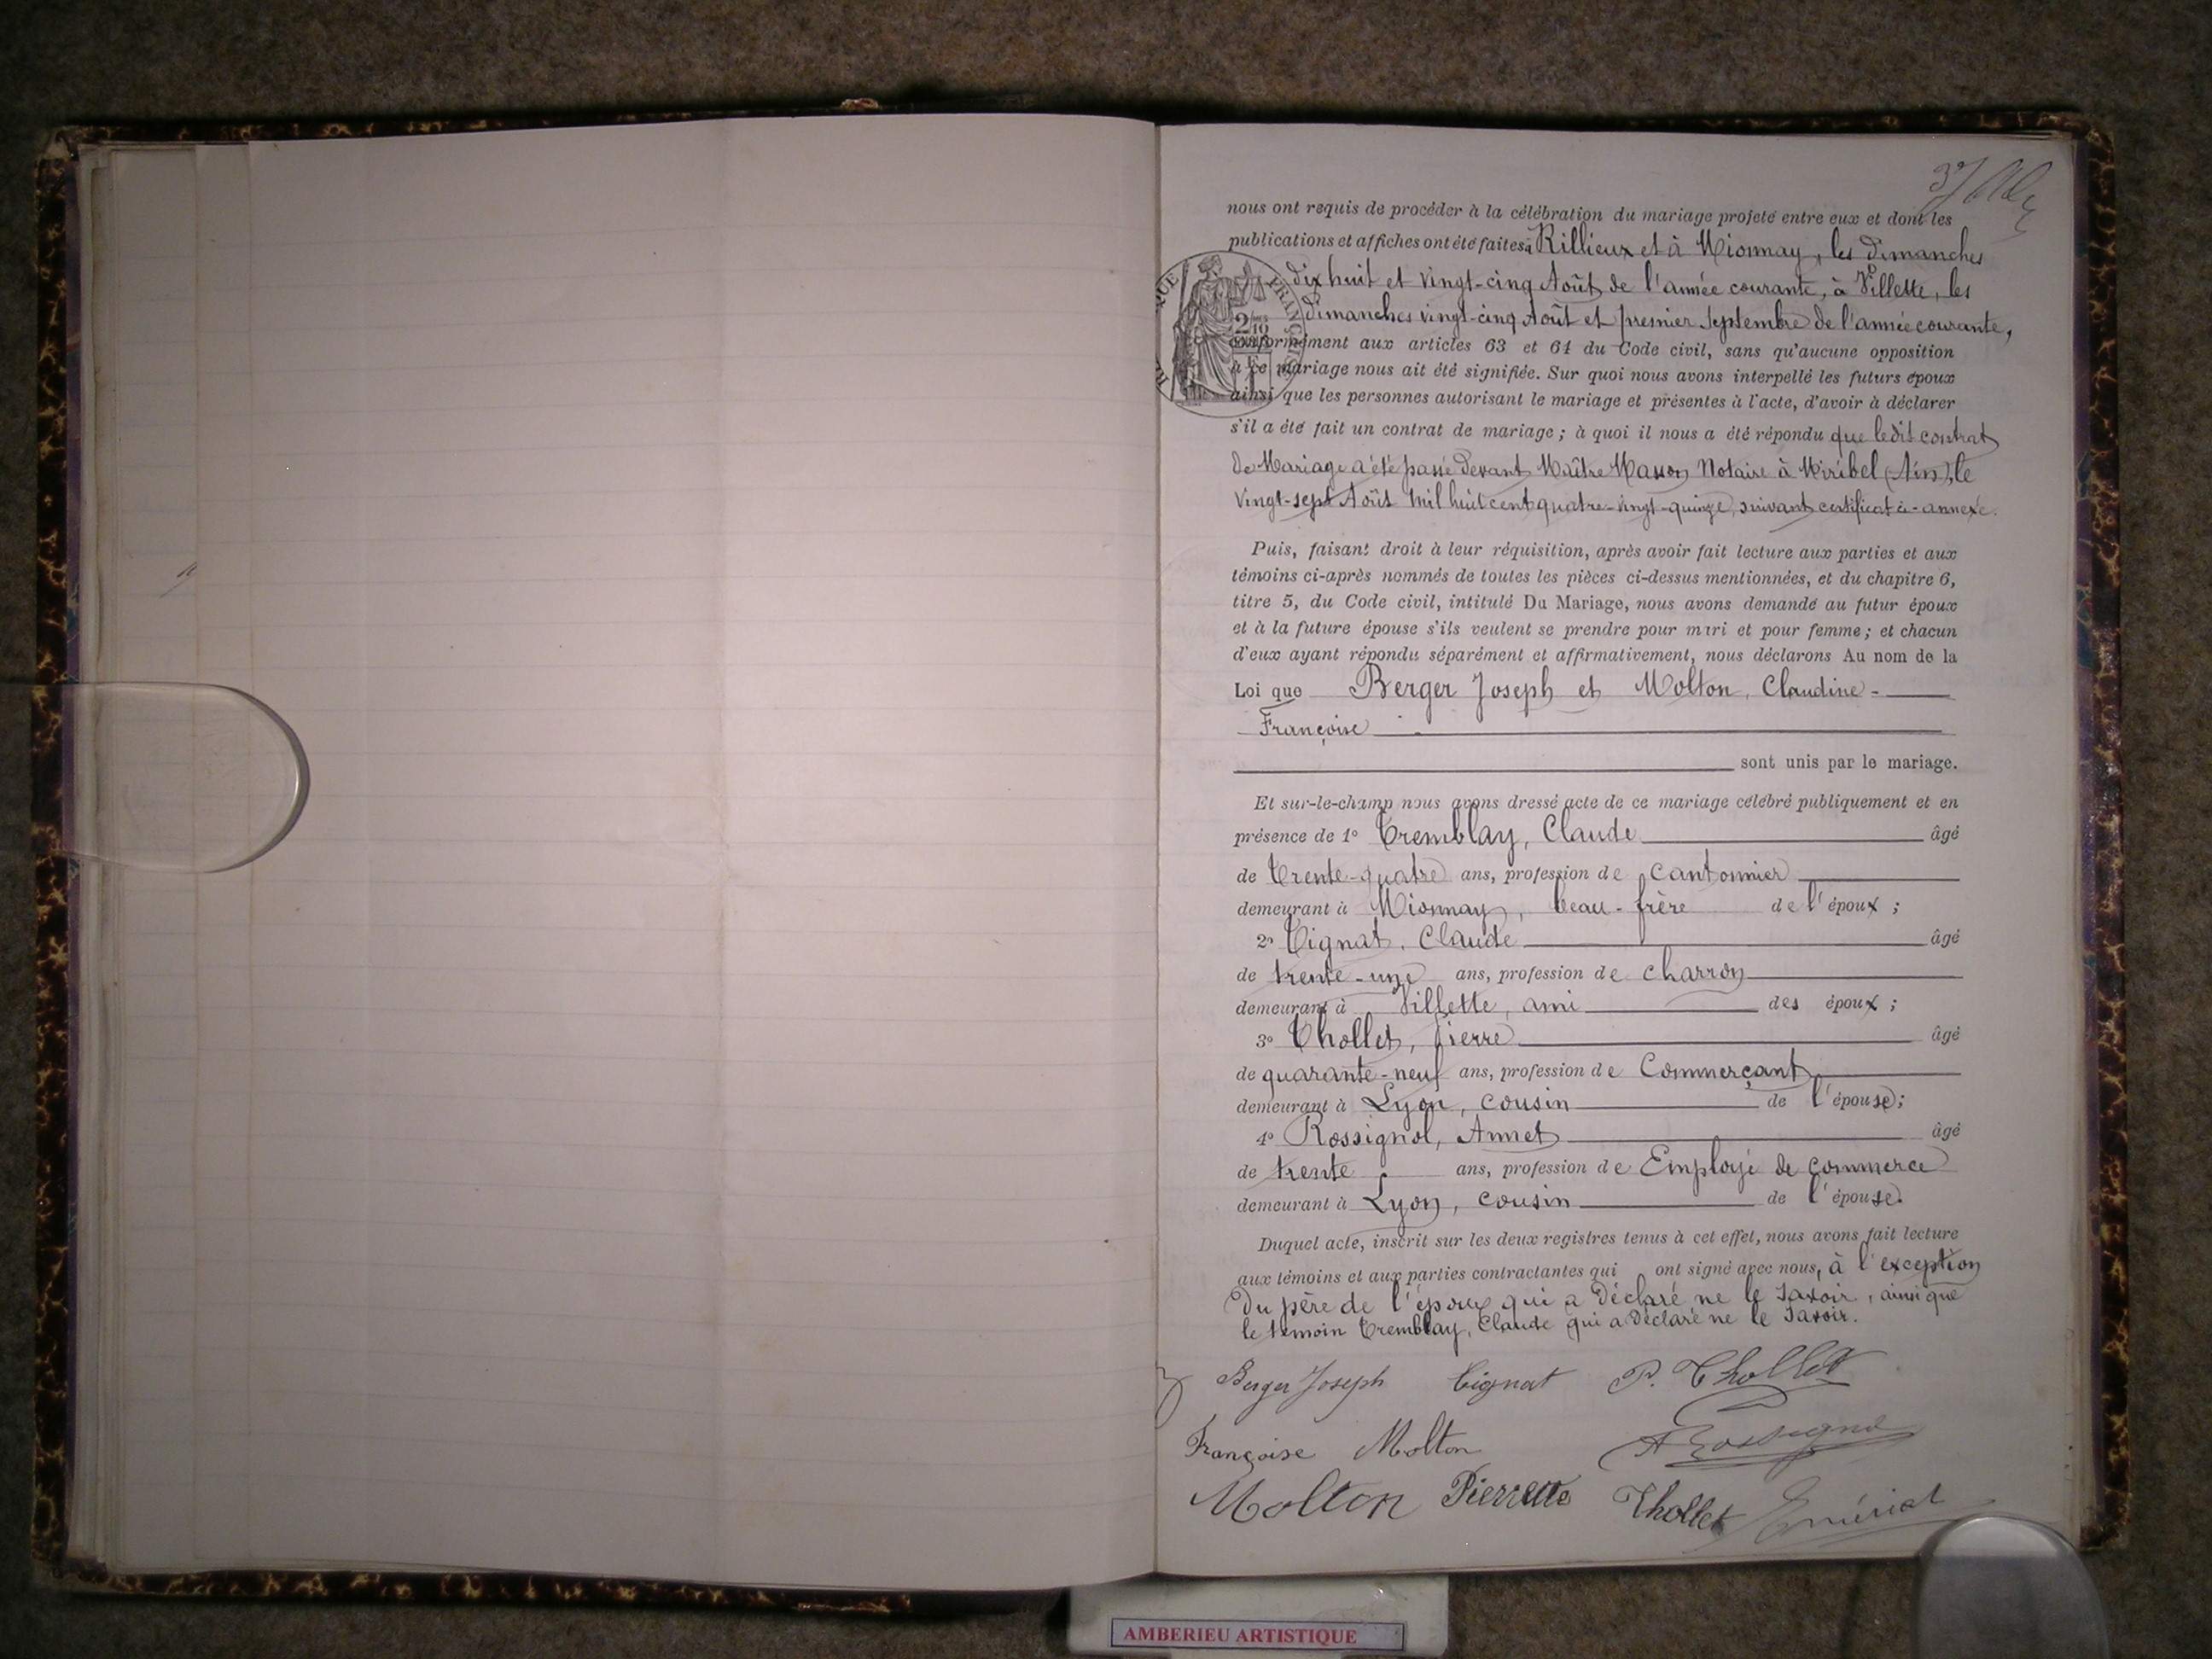 nous ont requis de procéder à la célébration du mariage projeté entre eux et dont les
publications et affiches ont été faites à Rillieux et à Mionnay, les dimanches
dix huit et vingt-cinq Août de l'année courante, à Villette, les
dimanches vingt-cinq Août et premier Septembre de l'année courante,
conformément aux articles 63 et 64 du Code civil, sans qu'aucune opposition
à ce mariage nous ait été signifiée. Sur quoi nous avons interpellé les futurs époux
ainsi que les personnes autorisant le mariage et présentes à l'acte, d'avoir à déclarer
s'il a été fait un contrat de mariage ; à quoi il nous a été répondu que ledit contrat
de Mariage a été passé devant Maître Masson Notaire à Miribel (Ain), le
vingt-sept Août mil huit cent quatre-vingt-quinze, suivant certificat ci-annexé.
Puis, faisant droit à leur réquisition, après avoir fait lecture aux parties et aux
témoins ci-après nommés de toutes les pièces ci-dessus mentionnées, et du chapitre 6,
titre 5, du Code civil, intitulé Du Mariage, nous avons demandé au futur époux
et à la future épouse s'ils veulent se prendre pour mari et pour femme ; et chacun
d'eux ayant répondu séparément et affirmativement, nous déclarons Au nom de la
Loi que Berger Joseph et Molton, Claudine-
Françoise
sont unis par le mariage.
Et sur-le-champ nous avons dressé acte de ce mariage célébré publiquement et en
présence de 1° Tremblay, Claude âgé
de Trente-quatre ans, profession de cantonnier
demeurant à Mionnay, beau-frère de l'époux ;
2° Tignat, Claude âgé
de trente-une ans, profession de charron
demeurant à Villette, ami des époux ;
3° Thollet, Pierre âgé
de quarante-neuf ans, profession de Commerçant
demeurant à Lyon, cousin de l'épouse ;
4° Rossignol, Annet âgé
de trente ans, profession de Employé de commerce
demeurant à Lyon, cousin de l'épouse.
Duquel acte, inscrit sur les deux registres tenus à cet effet, nous avons fait lecture
aux témoins et aux parties contractantes qui ont signé avec nous, à l'exception
du père de l'époux qui a déclaré ne le savoir, ainsi que
le témoin Tremblay, Claude qui a déclaré ne le savoir.
Berger Joseph Tignat P. Thollet
Françoise Molton A Rossignol
Molton Pierrette Thollet
AMBERIEU ARTISTIQUE